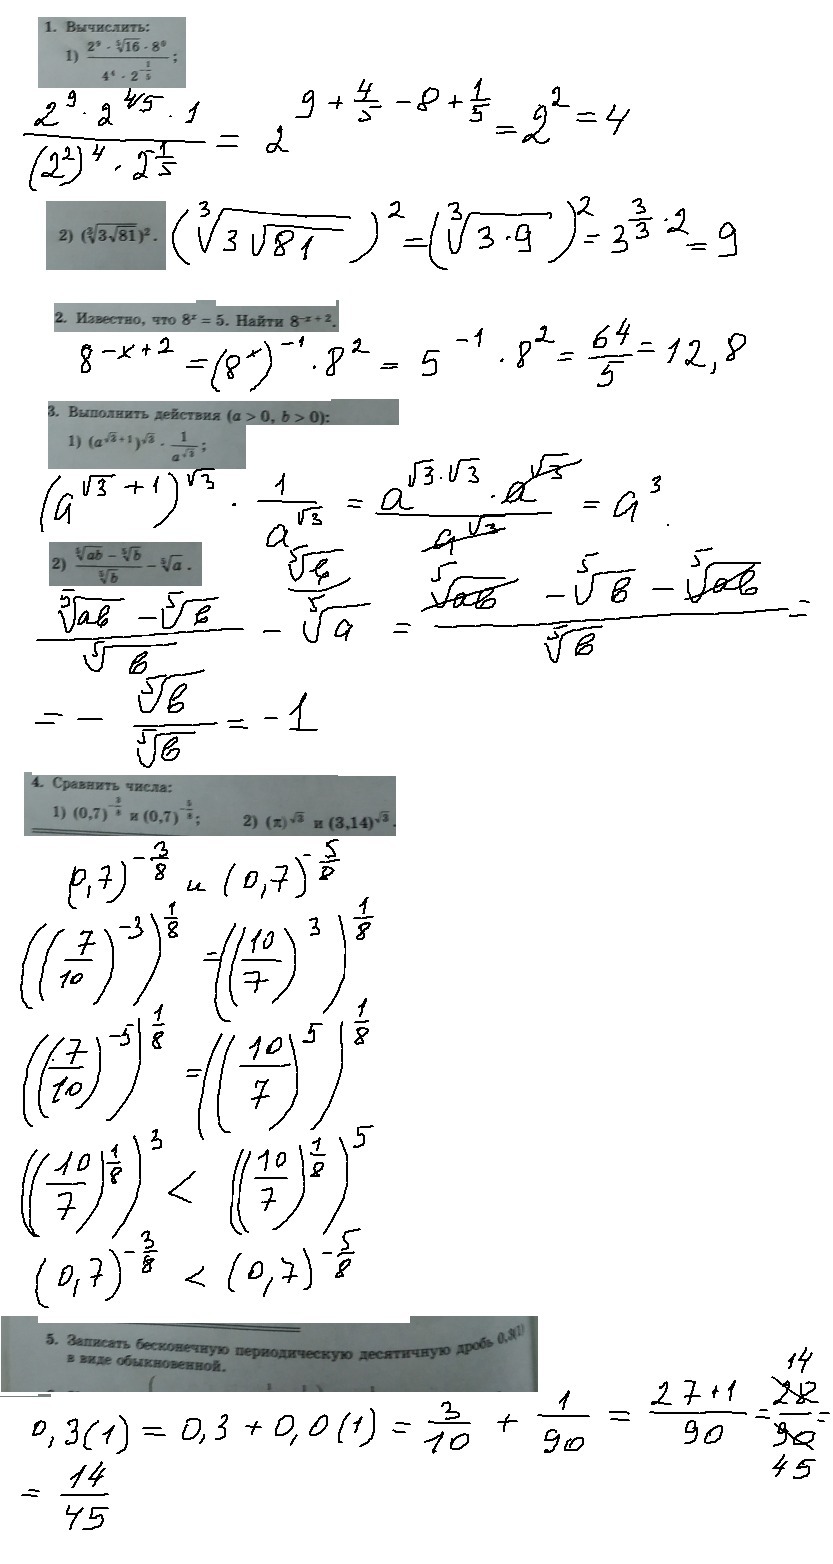 1. Вычислить:
1) (2⁹ · ⁵√16 · 8⁰) / (4⁴ · 2^(-1/5)) ;
(2⁹ · 2^(4/5) · 1) / ((2²)⁴ · 2^(1/5)) = 2^(9 + 4/5 − 8 + 1/5) = 2² = 4
2) (³√(3√81))². (³√(3√81))² = (³√(3·9))² = 3^(3/3 · 2) = 9
2. Известно, что 8ˣ = 5. Найти 8^(−x + 2).
8^(−x+2) = (8ˣ)⁻¹ · 8² = 5⁻¹ · 8² = 64/5 = 12,8
3. Выполнить действия (a > 0, b > 0):
1) (a^(√3 + 1))^√3 · 1/a^√3 ;
(a^(√3 + 1))^√3 · 1/a^√3 = (a^(√3·√3) · a^√3) / a^√3 = a³.
2) (⁵√ab − ⁵√b) / ⁵√b − ⁵√a .
⁵√b
(⁵√ab − ⁵√b) / ⁵√b − ⁵√a = (⁵√ab − ⁵√b − ⁵√ab) / ⁵√b =
= − ⁵√b / ⁵√b = −1
4. Сравнить числа:
1) (0,7)^(−3/8) и (0,7)^(−5/8); 2) (π)^√3 и (3,14)^√3.
(0,7)^(−3/8) и (0,7)^(−5/8)
((7/10)⁻³)^(1/8) = ((10/7)³)^(1/8)
((7/10)⁻⁵)^(1/8) = ((10/7)⁵)^(1/8)
((10/7)^(1/8))³ < ((10/7)^(1/8))⁵
(0,7)^(−3/8) < (0,7)^(−5/8)
5. Записать бесконечную периодическую десятичную дробь 0,3(1)
в виде обыкновенной.
14
0,3(1) = 0,3 + 0,0(1) = 3/10 + 1/90 = (27+1)/90 = 28/90 =
45
= 14/45